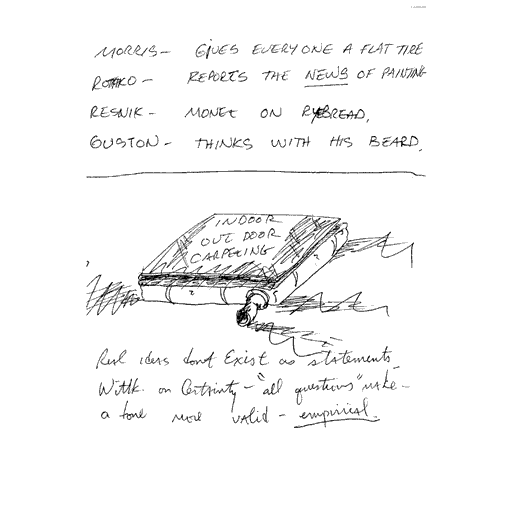 MORRIS – GIVES EVERYONE A FLAT TIRE
ROTHKO – REPORTS THE NEWS OF PAINTING
RESNIK – MONET ON RYEBREAD.
GUSTON – THINKS WITH HIS BEARD.
INDOOR
OUT DOOR
CARPETING
Real ideas don't Exist as statements
Wittk. on Certainty – "all questions" make –
a tone more valid – empirical.